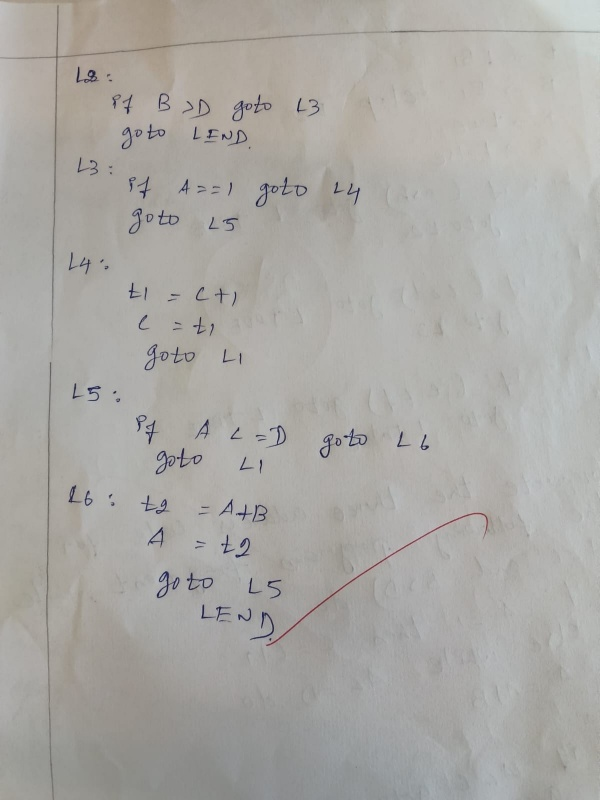 L2:
if B >D goto L3
goto LEND.
L3:
if A==1 goto L4
goto L5
L4:
t1 = C+1
C = t1
goto L1
L5:
if A <=D goto L6
goto L1
L6: t2 = A+B
A = t2
goto L5
LEND